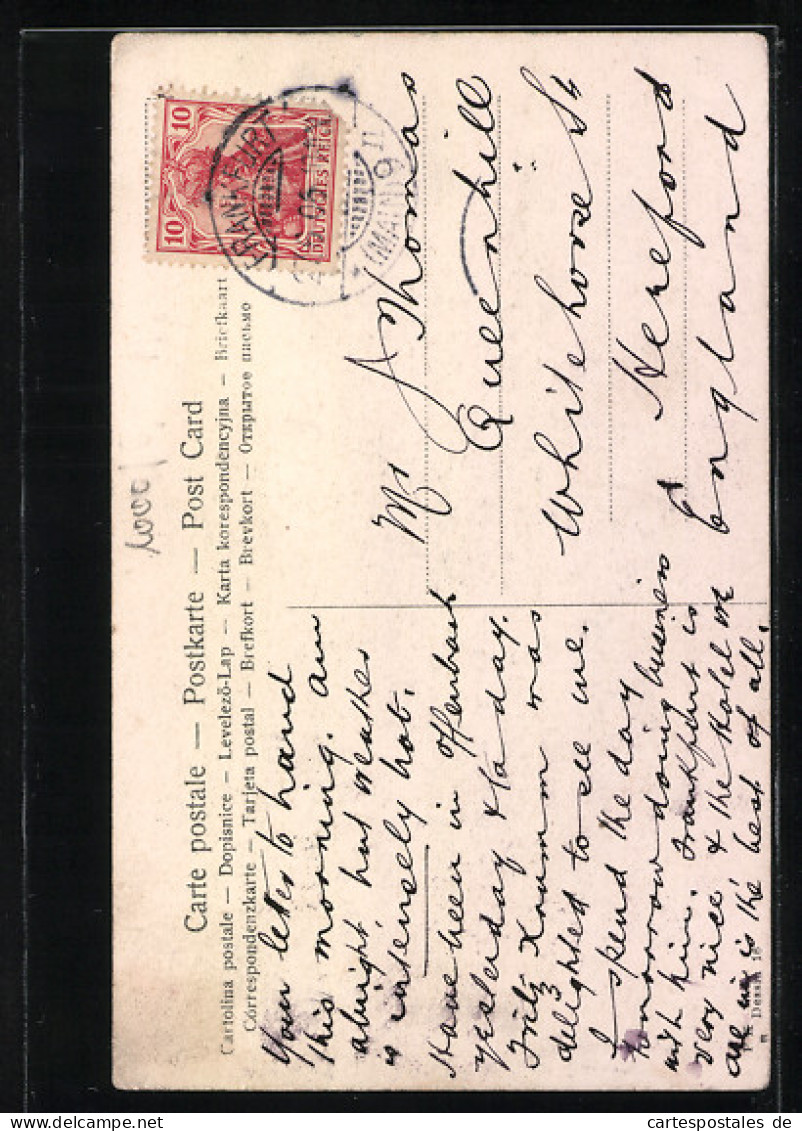 Carte postale — Postkarte — Post Card
Cartolina postale — Dopisnice — Levelező-Lap — Karta korespondencyjna — Briefkaart
Correspondenzkarte — Tarjeta postal — Brefkort — Brevkort — Открытое письмо
10 10
DEUTSCHES REICH
FRANKFURT
(MAIN) 9
1000
Your letter to hand
this morning. am
alright but weather
is intensely hot.
Have been in Offenbach
yesterday & today.
Fritz Kramm was
delighted to see me.
I spend the day
tomorrow doing business
with him. Frankfurt is
very nice & the Hotel we
are in is the best of all.
Mr J Thomas
Queenhill
Whitehorse St
Hereford
England
Dessin 16
delcampe.net
cartespostales de